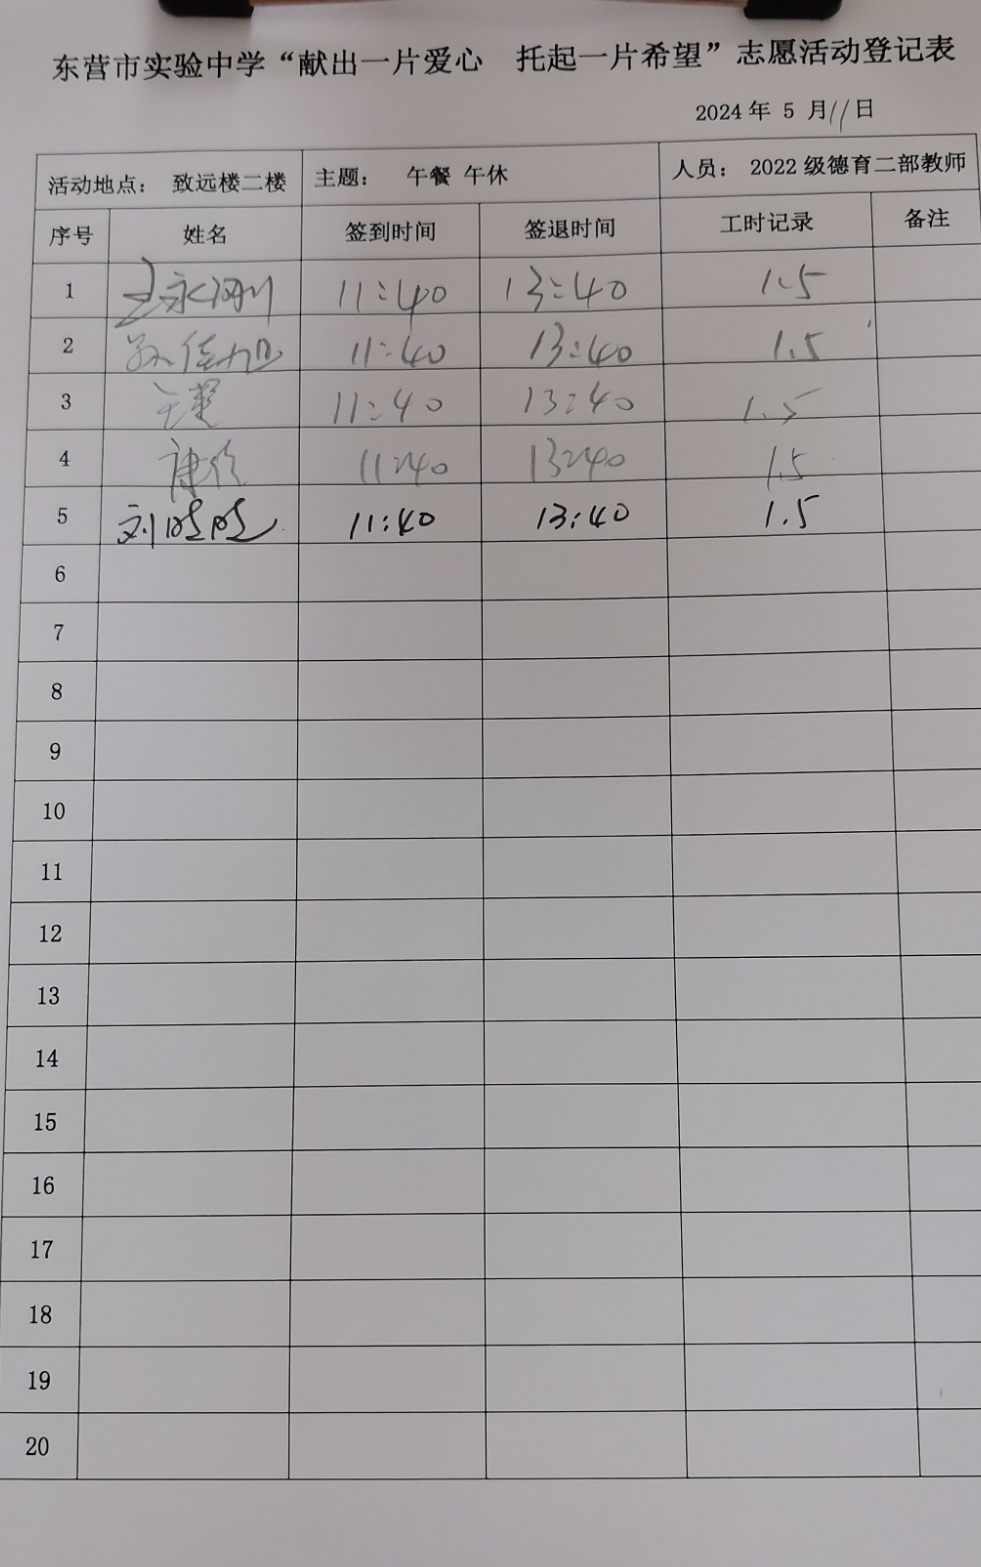 东营市实验中学“献出一片爱心 托起一片希望”志愿活动登记表
2024 年 5 月 11 日
活动地点： 致远楼二楼 主题： 午餐 午休 人员： 2022 级德育二部教师
序号 姓名 签到时间 签退时间 工时记录 备注
1 王永刚 11:40 13:40 1.5
2 孙佳旭 11:40 13:40 1.5
3 11:40 13:40 1.5
4 康 11:40 13:40 1.5
5 刘 11:40 13:40 1.5
6
7
8
9
10
11
12
13
14
15
16
17
18
19
20